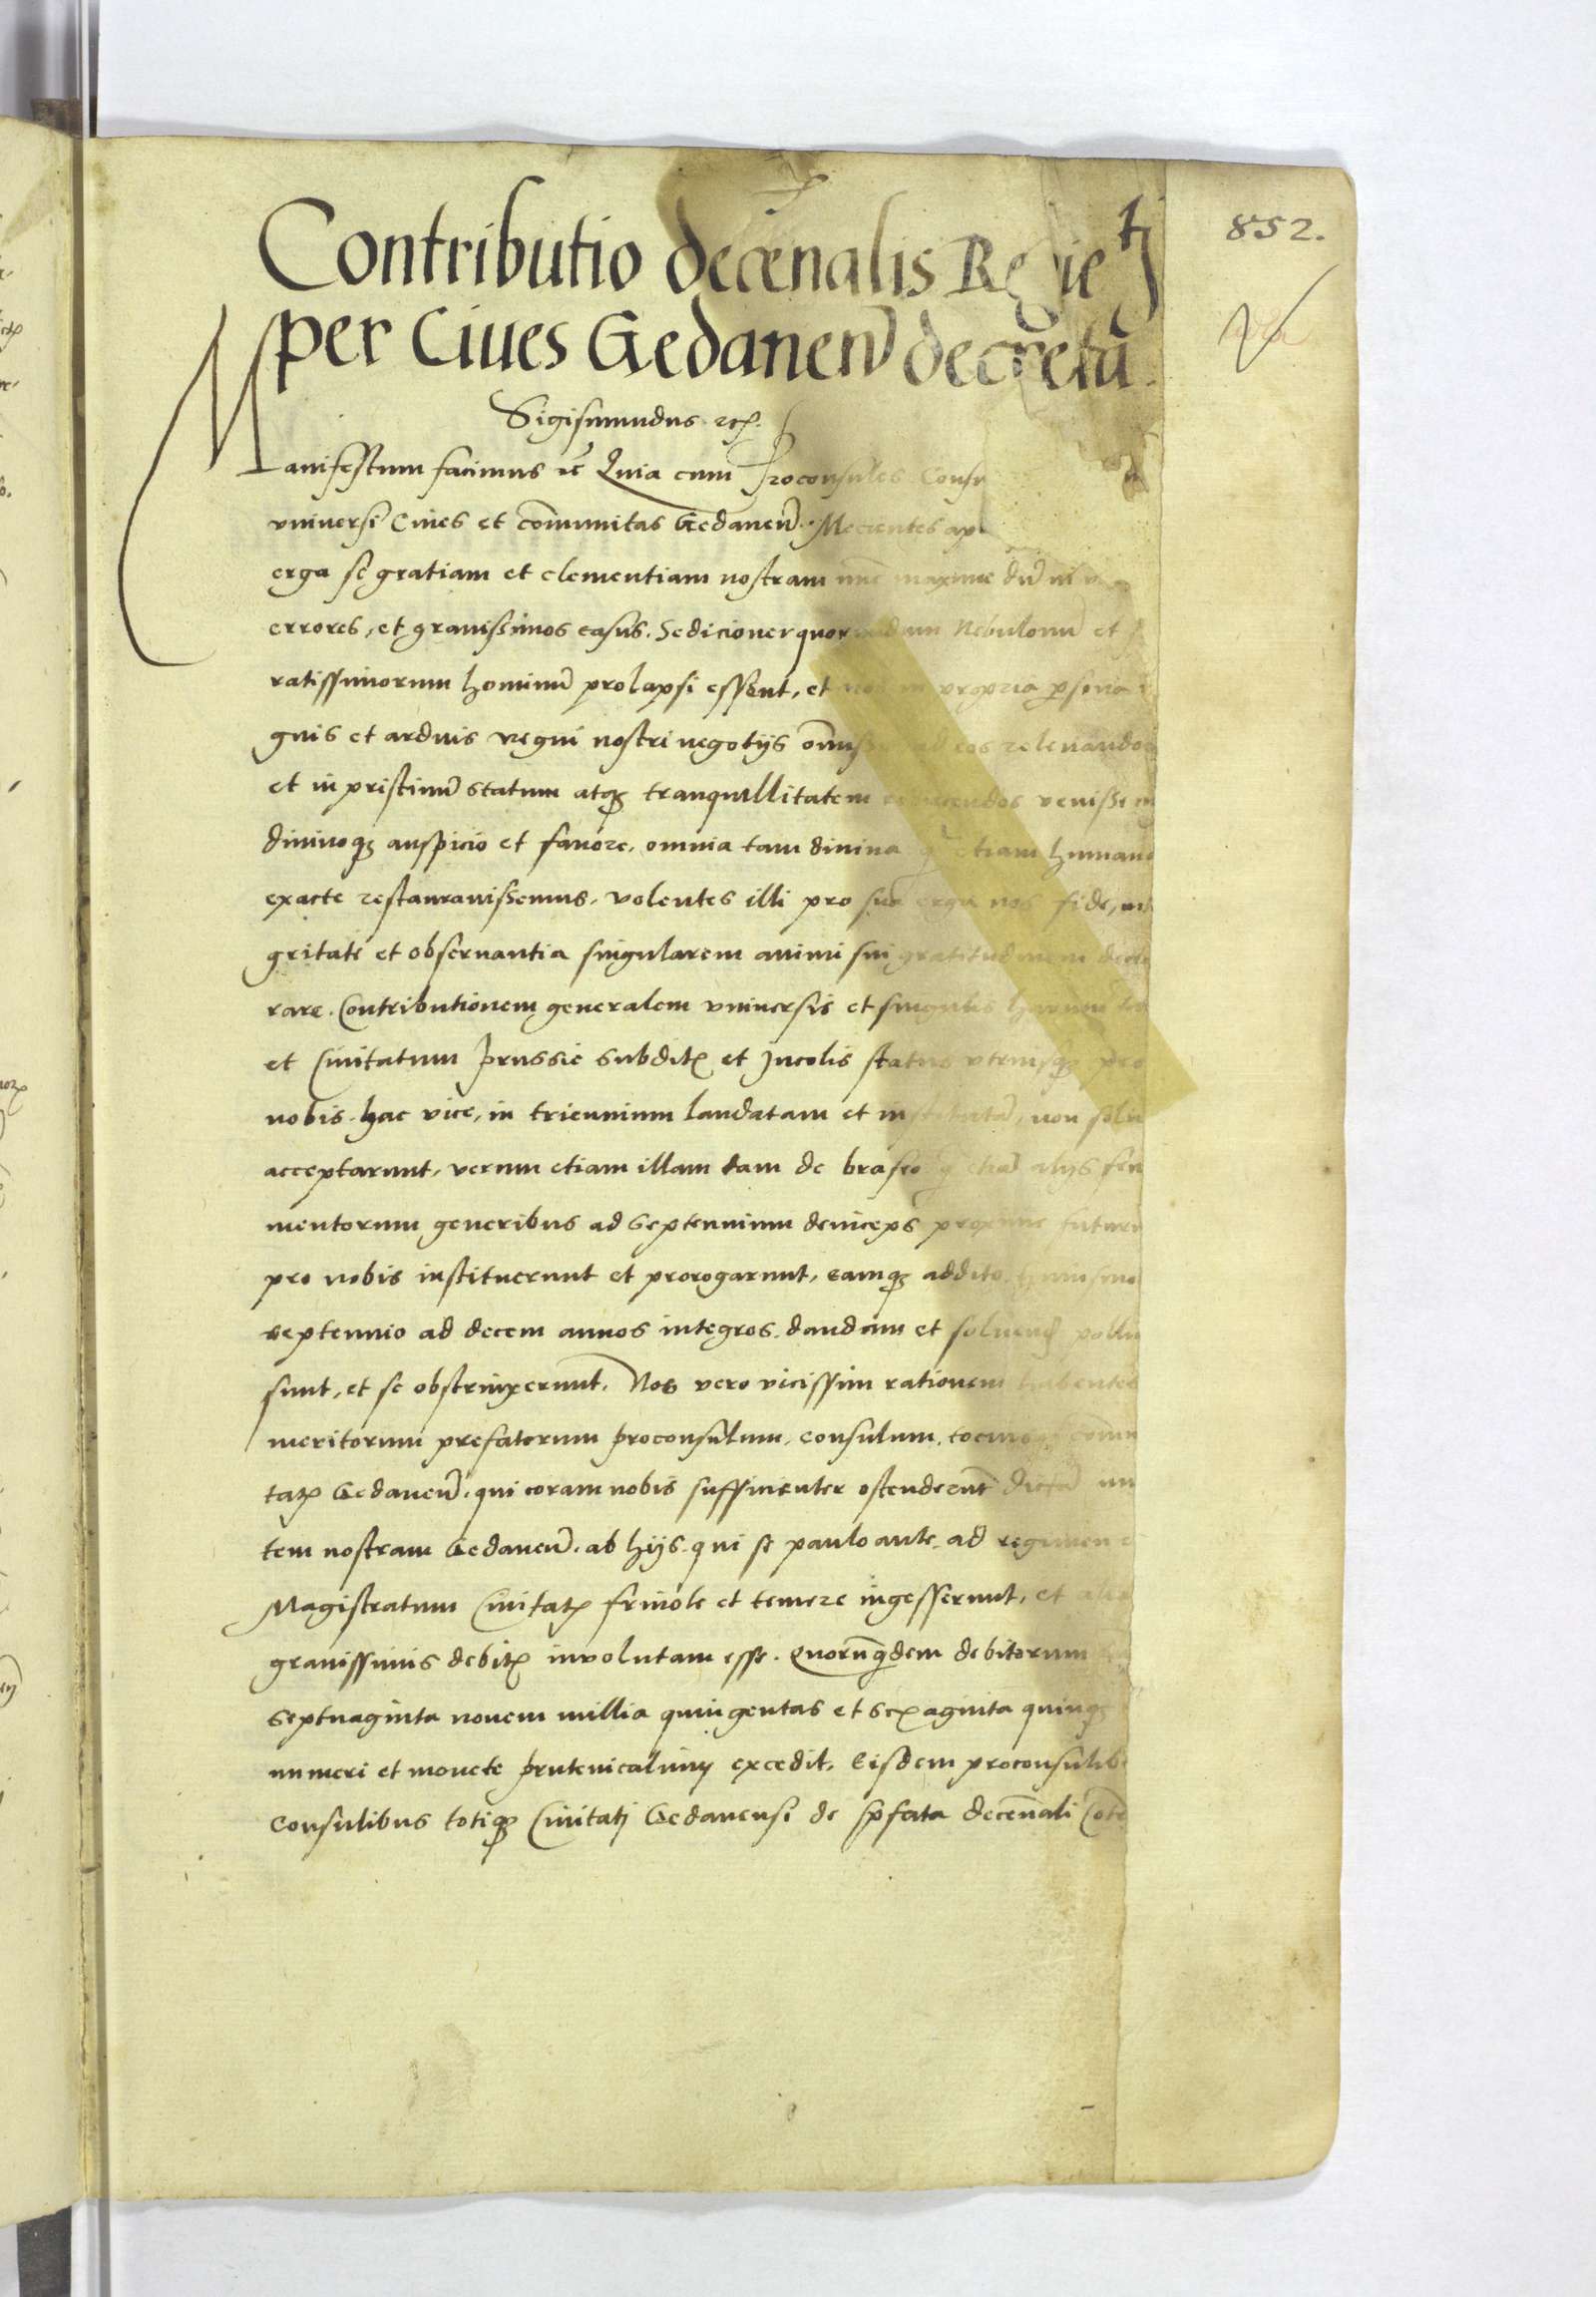 852.
Contributio decenalis Regie tj
per Ciues Gedanen decretu
Sigismundus etc.
Manifestum facimus etc Quia cum Proconsules Consu
vniuersi Ciues et comunitas Gedanen. Merentes
erga se gratiam et clementiam nostram nunc maxime dum in
errores, et grauissimos casus. Sedicioner quorundam Nebulonu et
ratissimorum hominu prolapsi essent, et nos in propria persona
gnis et arduis regni nostri negotijs omissis ad eos releuandos
et in pristinu statum atq tranquillitatem reducendos venissem
diuinoq auspicio et fauore, omnia tam diuina q etiam humana
exacte restaurauissemus, volentes illi pro sua erga nos fide, inte
gritate et obseruantia singularem animi sui gratitudinem decla
rare. Contributionem generalem vniuersis et singulis harum ter
et Ciuitatum Prussie subdit et Incolis status vtriusq pro
nobis hac vice, in triennium laudatam et institutam, non solu
acceptarunt, verum etiam illam tam de braseo q etia alijs fer
mentorum generibus ad septennium deinceps proxime futuru
pro nobis instituerunt et prorogarunt, eamq addito huiusmo
septennio ad decem annos integros dandam et soluend polli
sunt, et se obstrinxerunt. Nos vero vicissim rationem habentes
meritorum prefatorum proconsulum, consulum, tociusq comu
tat Gedanen. qui coram nobis sufficienter ostenderunt dicta
tem nostram Gedanen. ab hijs qui se pauloante ad regimen e
Magistratum Ciuitat friuole et temere ingesserunt, et
grauissimis debit involutam esse. Quoruqdem debitorum
septuaginta nouem millia quingentas et sexaginta quinq
numeri et monete prutenicalium excedit. Eisdem proconsulib
Consulibus totiq Ciuitatj Gedanensi de pfata decennali Cont